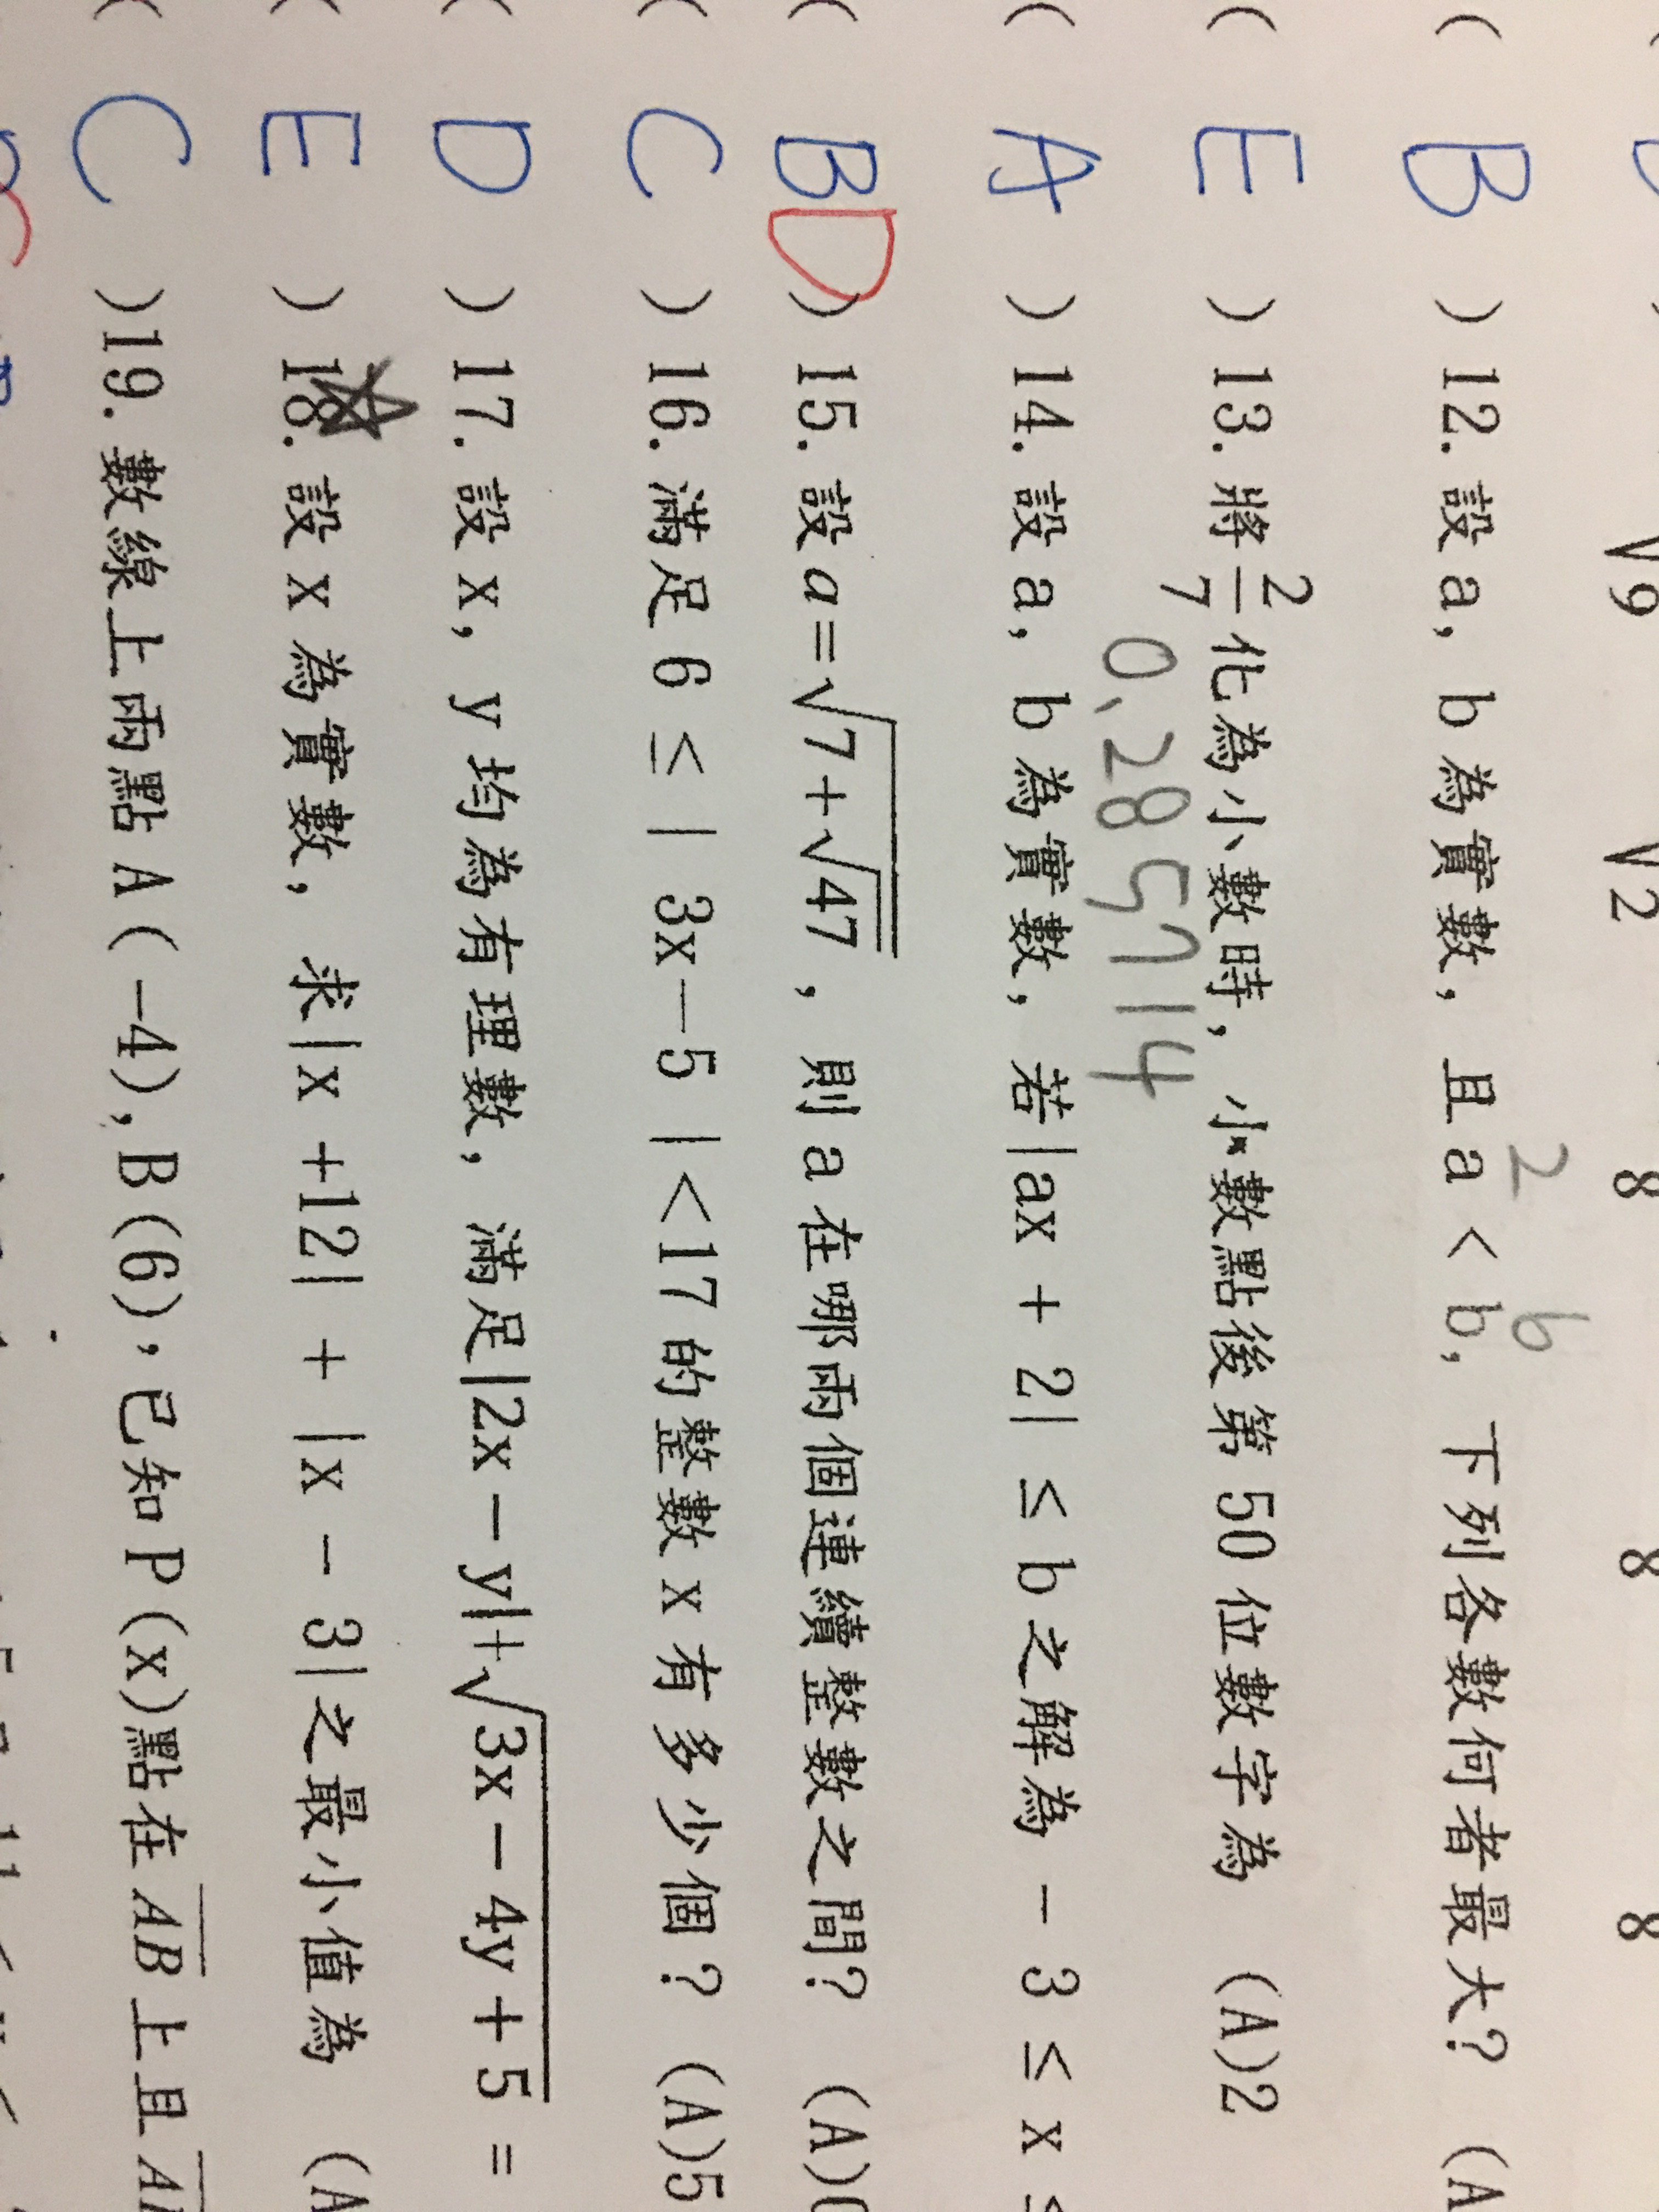 √9 √2 8 8 8
( B ) 12. 設 a, b 為實數, 且 a < b, 下列各數何者最大? (A
2 6
( E ) 13. 將 2/7 化為小數時, 小數點後第 50 位數字為 (A)2
0.285714
( A ) 14. 設 a, b 為實數, 若 |ax + 2| ≤ b 之解為 - 3 ≤ x ≤
( B D ) 15. 設 a=√(7+√47) , 則 a 在哪兩個連續整數之間? (A)
( C ) 16. 滿足 6 ≤ | 3x-5 | <17 的整數 x 有多少個? (A)5
( D ) 17. 設 x, y 均為有理數, 滿足|2x - y|+√(3x - 4y + 5) =
( E ) 18. 設 x 為實數, 求|x +12| + |x - 3|之最小值為 (A
( C ) 19. 數線上兩點 A(-4), B(6), 已知 P(x)點在 AB 上且